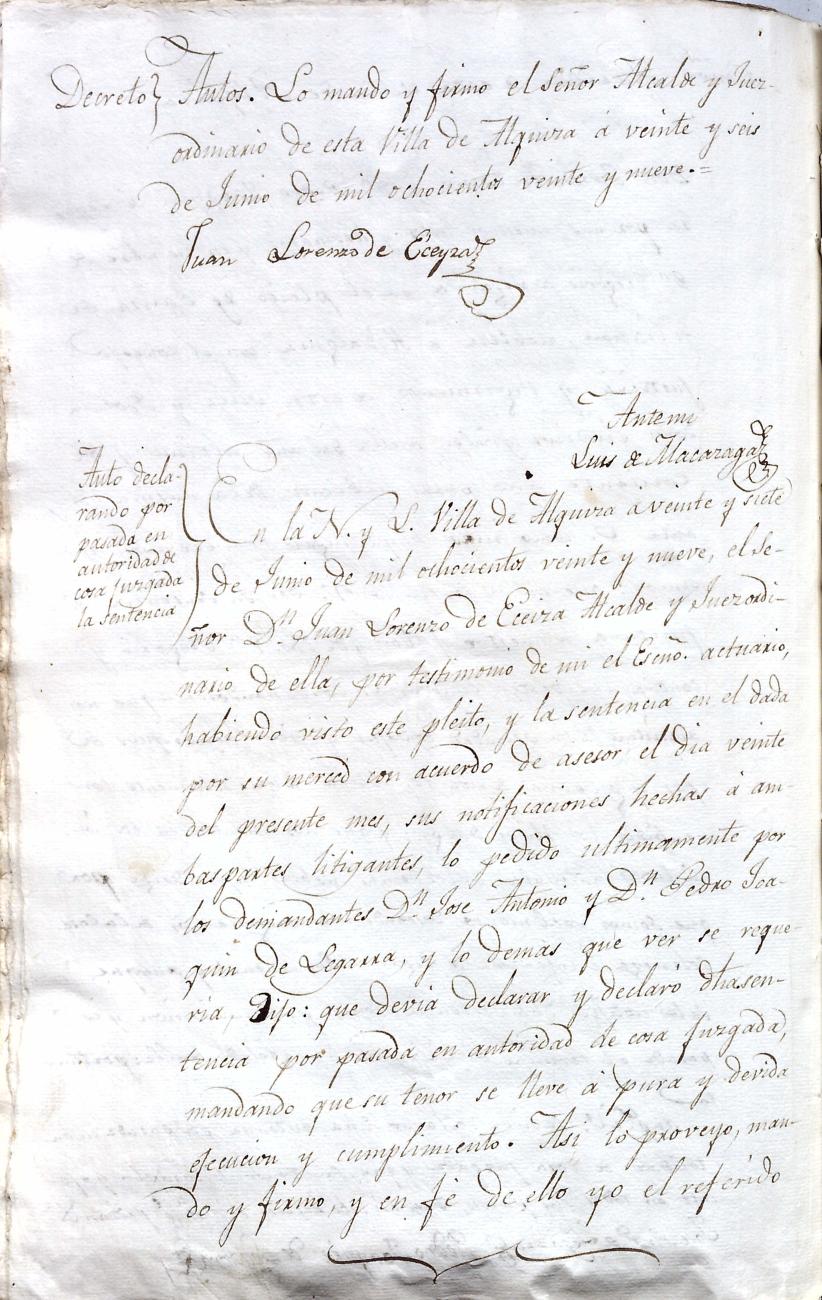 Decreto} Autos. Lo mando y firmo el Señor Alcalde y Juez
ordinario de esta Villa de Alquiza á veinte y seis
de Junio de mil ochocientos veinte y nueve.=
Juan Lorenzo de Eceyza
Antemi
Luis de Alacaraga
Auto decla-
rando por
pasada en
autoridad de
cosa juzgada
la sentencia
En la N. y L. Villa de Alquiza a veinte y siete
de Junio de mil ochocientos veinte y nueve, el Se-
ñor Dn. Juan Lorenzo de Eceiza Alcalde y Juez ordi-
nario de ella, por testimonio de mi el Escño. actuario,
habiendo visto este pleito, y la sentencia en el dada
por su merced con acuerdo de asesor el dia veinte
del presente mes, sus notificaciones hechas á am-
bas partes litigantes, lo pedido ultimamente por
los demandantes Dn. Jose Antonio y Dn. Pedro Joa-
quin de Legarra, y lo demas que ver se reque-
ria, Dijo: que devia declarar y declaró dha sen-
tencia por pasada en autoridad de cosa juzgada,
mandando que su tenor se lleve á pura y devida
ejecucion y cumplimiento. Asi lo proveyo, man-
do y firmo, y en fé de ello yo el referido